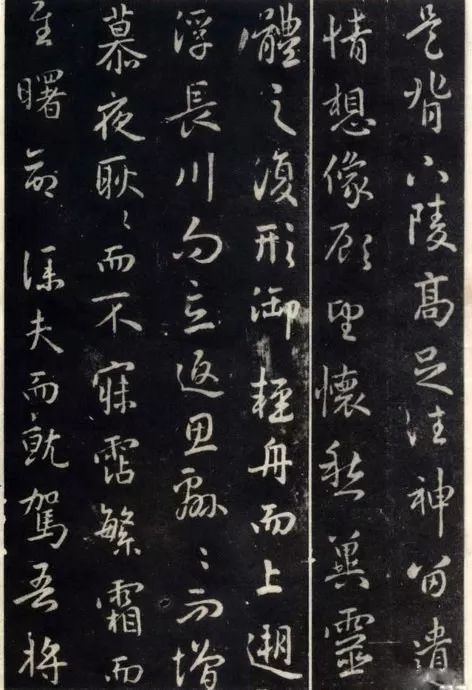 是背下陵高足往神留遺
情想像顧望懷愁冀靈
體之復形御輕舟而上遡
浮長川而忘返思緜〻而增
慕夜耿〻而不寐霑繁霜而
至曙命僕夫而就駕吾將